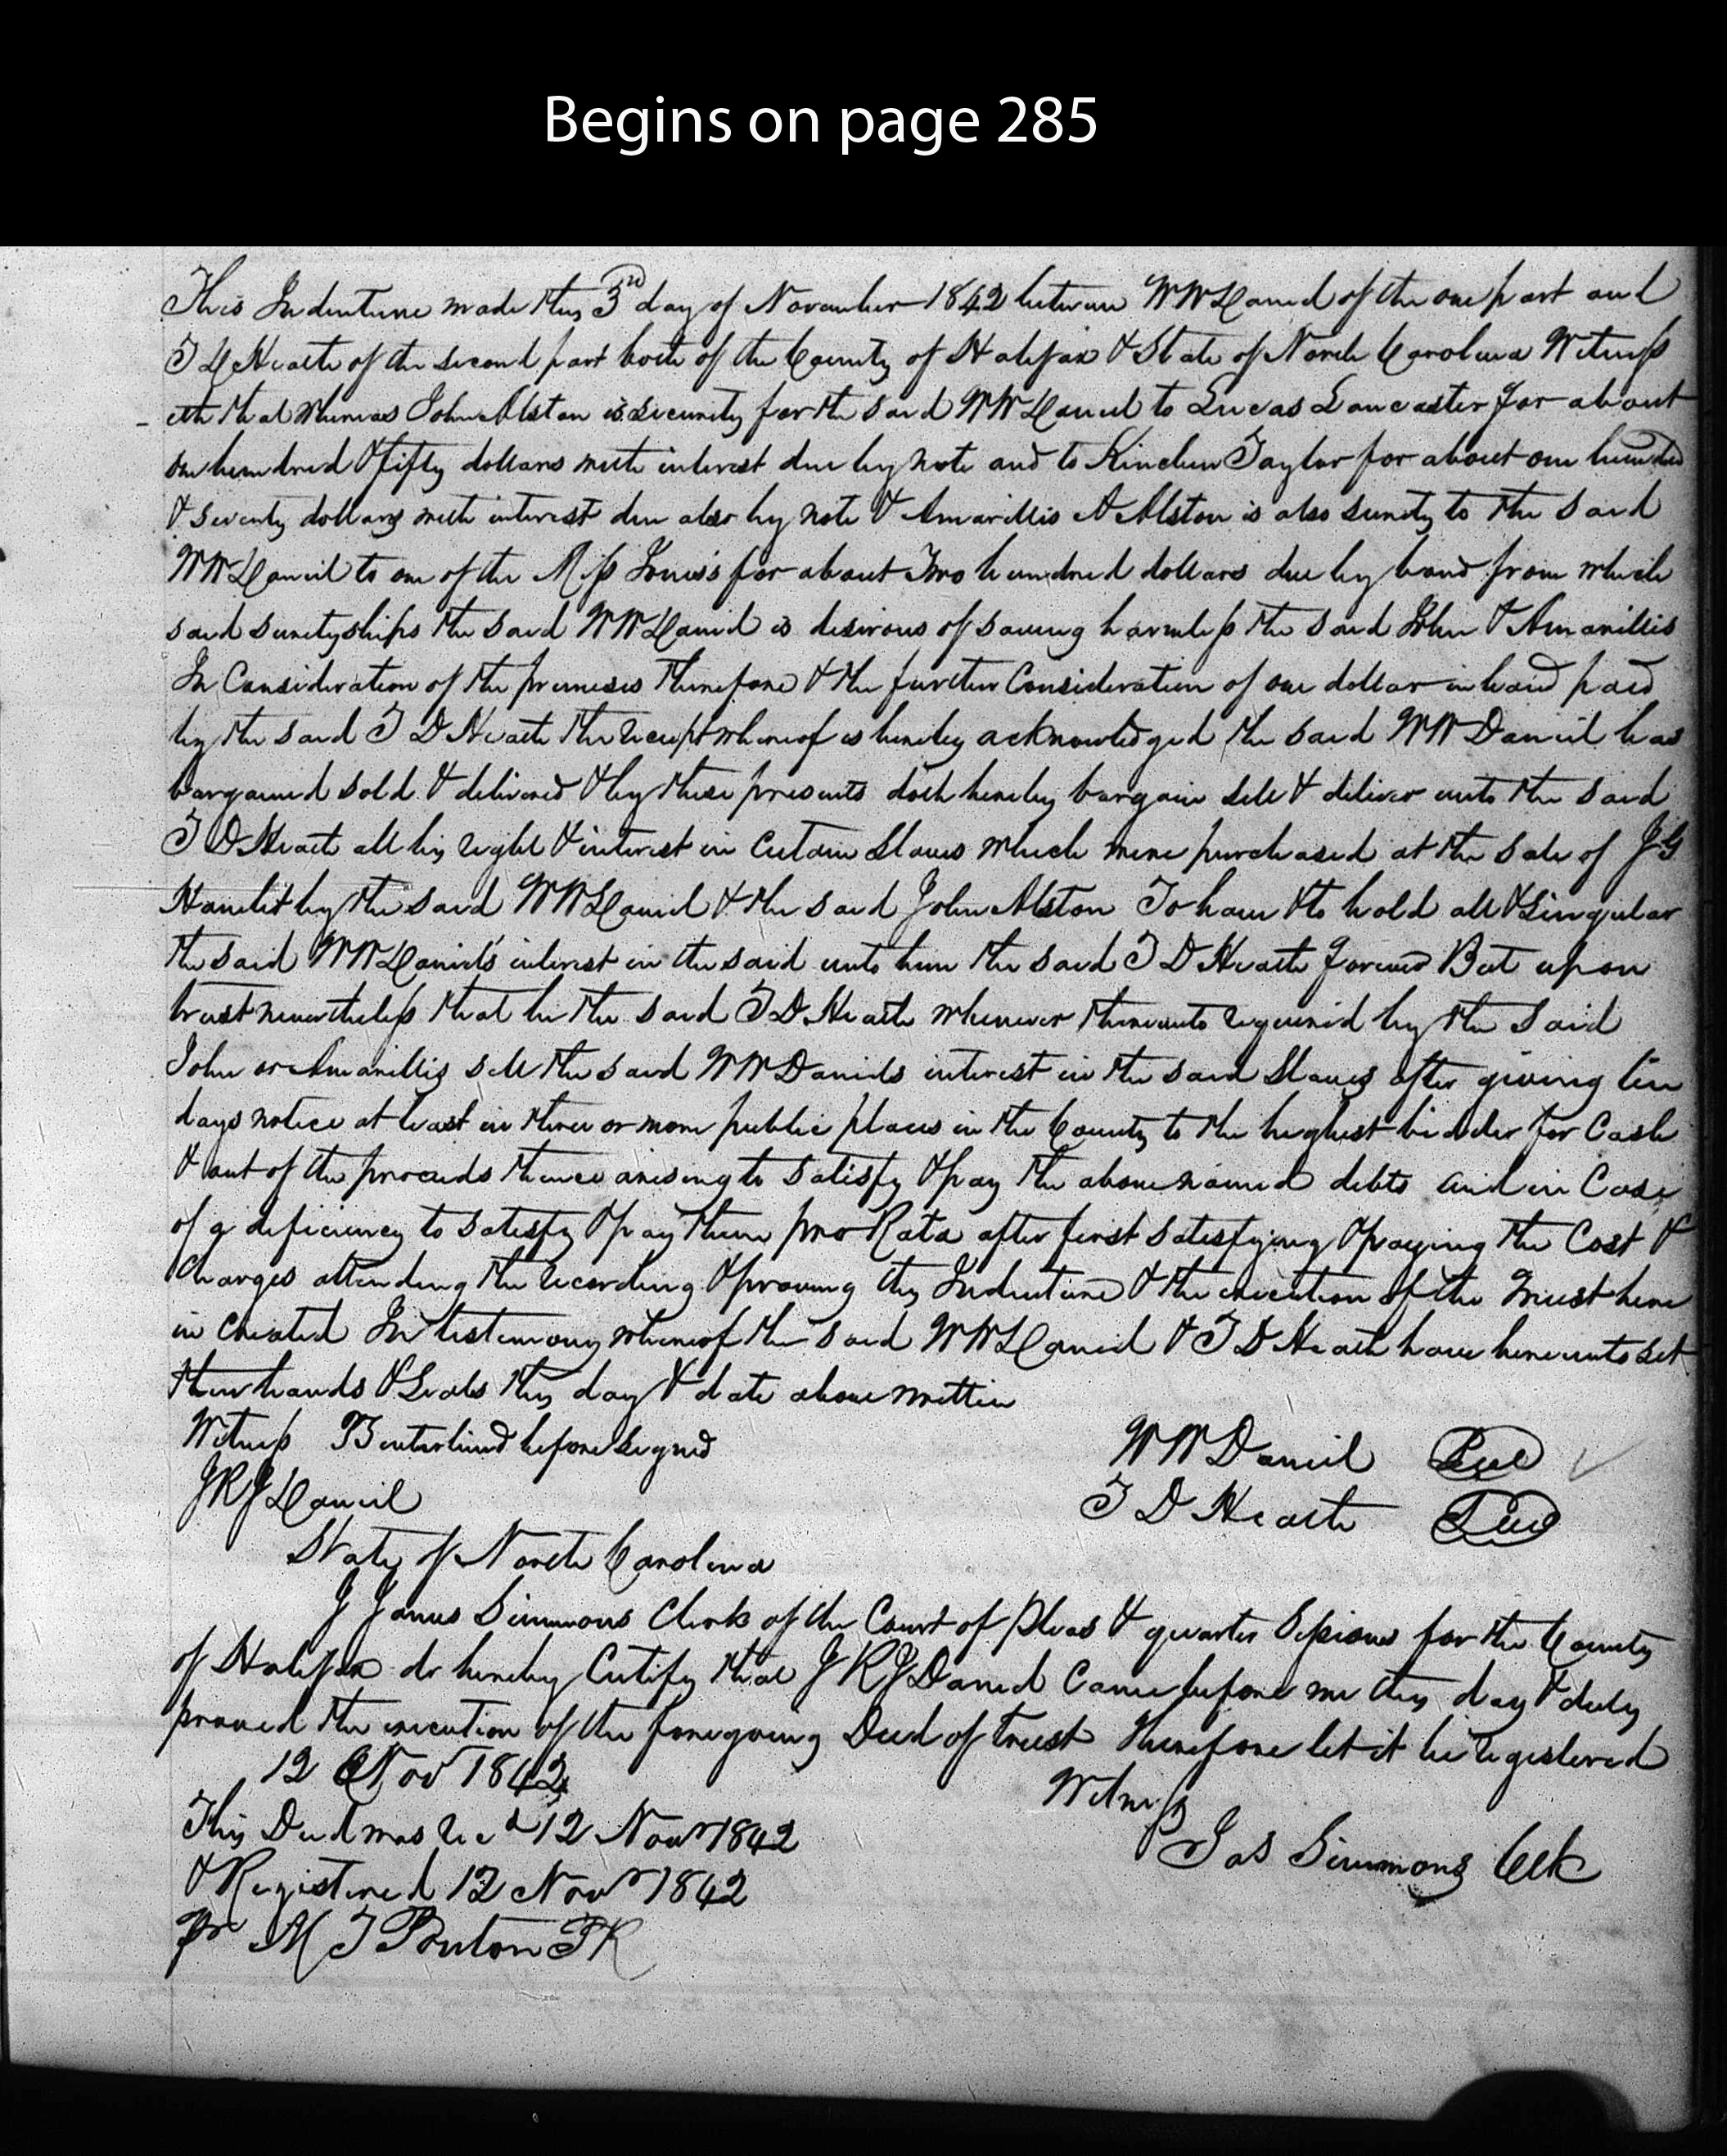 Begins on page 285
This Indenture made this 3rd day of November 1842 between W W Daniel of the one part and
T D Heath of the second part both of the County of Halifax & State of North Carolina Witness
eth that Whereas John Alston is security for the said W W Daniel to Lucas Lancaster for about
one hundred & fifty dollars with interest due by note and to Kinchen Taylor for about one hundred
& seventy dollars with interest due also by note & Amarillis A Alston is also surety to the said
W W Daniel to one of the Miss for about Two hundred dollars due by bond from which
said suretyships the said W W Daniel is desirous of saving harmless the said John & Amarillis
In Consideration of the premises Therefore & the further Consideration of one dollar in hand paid
by the said T D Heath The receipt whereof is hereby acknowledged the said W W Daniel has
bargained sold & delivered & by these presents doth hereby bargain sell & deliver unto the said
T D Heath all his right & interest in Certain Slaves which were purchased at the sale of J G
by the said W W Daniel & the said John Alston To have & to hold all & Singular
the said W W Daniel's interest in the said unto him the said T D Heath forever But upon
trust nevertheless that he the said T D Heath whenever thereunto required by the said
John or Amarillis sell the said W W Daniels interest in the said Slaves after giving ten
days notice at least in three or more public places in the County to the highest bidder for Cash
& out of the proceeds thence arising to satisfy & pay the above named debts and in Case
of a deficiency to satisfy & pay them pro Rata after first satisfying & paying the Cost &
Charges attending the recording & proving this Indenture & the execution of the Trust here
in created In testimony whereof the said W W Daniel & T D Heath have hereunto set
their hands & Seals this day & date above written
Witness interlined before signed
J R J Daniel
W W Daniel Seal
T D Heath Seal
State of North Carolina
I James Simmons Clerk of the Court of Pleas & quarter Sessions for the County
of Halifax do hereby Certify that J R J Daniel Came before me this day & duly
proved the execution of the foregoing Deed of trust Therefore let it be registered
12 Nov 1842
Witness
Jas Simmons Clk
This Deed was Recd 12 Novr 1842
& Registered 12 Novr 1842
pr M T Ponton P R